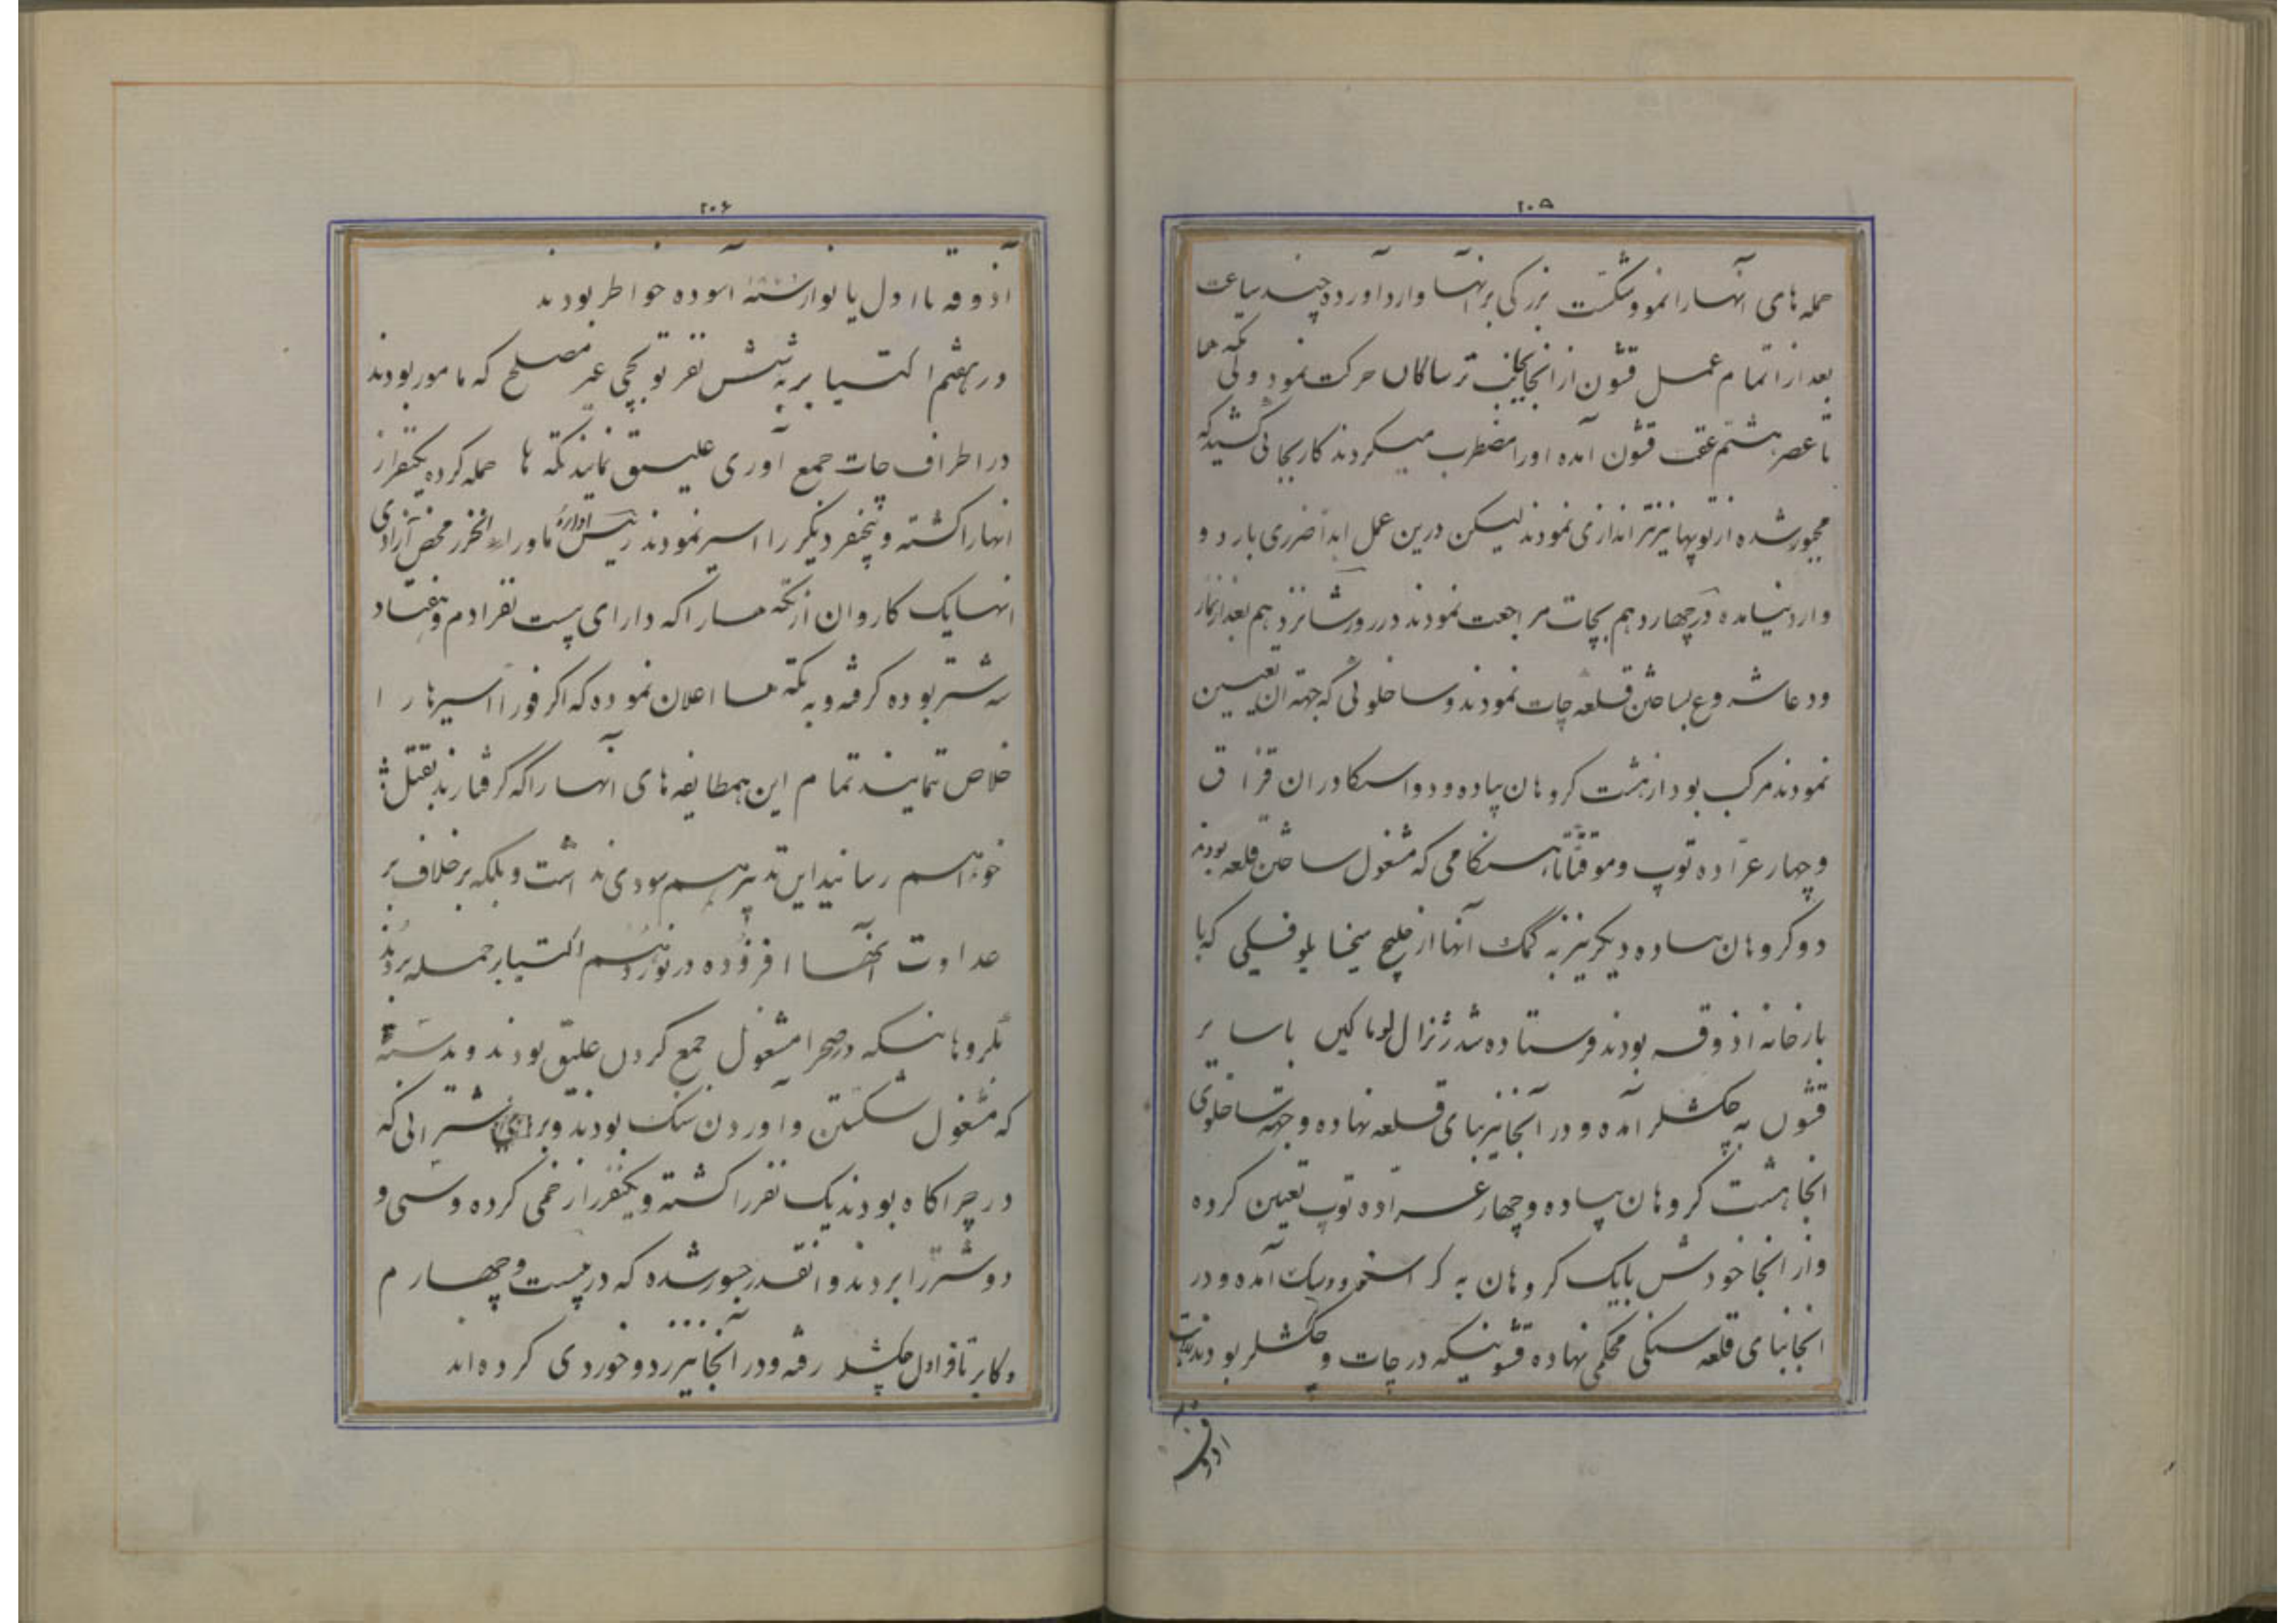 ۲۰۵
حمله های آنها را نمود و شکست بزرکی بر آنها وارد آورده چند ساعت
بعد از اتمام عمل قشون از انجا بجانب ترساکان حرکت نمود ولی تکه ها
تا عصر هشتم عقب قشون آمده او را مضطرب میکردند کار بجائی کشید که
مجبور شده از توپها نیز تیراندازی نمودند لیکن درین عمل ابداً ضرری باردو
وارد نیامده در چهاردهم بچات مراجعت نمودند در روز شانزدهم بعد از نماز
ودعا شروع بساختن قلعه چات نمودند و ساخلوئی که جهته آن تعیین
نمودند مرکب بود از هشت کروهان پیاده و دو اسکادران قزاق
و چهار عراده توپ و موقتاً تا هنکامی که مشغول ساختن قلعه بودند
دو کروهان پیاده دیکر نیز به کمک آنها از خلیج میخایلوفسکی که با
بارخانه اذوقه بودند فرستاده شد ژنرال لوماکین با سایر
قشون به چکشلر آمده و در آنجا نیز بنای قلعه نهاده و جهته ساخلوی
انجا هشت کروهان پیاده و چهار عراده توپ تعیین کرده
و از انجا خودش با یک کروهان به کراسنوودسک آمده و در
انجا بنای قلعه سنکی محکمی نهاده قشونیکه در چات و چکشلر بودند
اذوقه
۲۰۶
آذوقه تا اول یانوار داشته آسوده خواطر بودند
در هفتم اکتیابر به شش نفر توپچی غیر مصلح که مامور بودند
در اطراف چات جمع آوری علیق نمایند تکه ها حمله کرده یکنفر از
انها را کشته و پنجنفر دیکر را اسیر نمودند رئیس اداره ماوراء الخزر محض آزادی
انها یک کاروان از تکه ها را که دارای بیست نفر ادم و هفتاد
سه شتر بوده کرفته و به تکه ها اعلان نموده که اکر فوراً اسیرها را
خلاص ننمایند تمام این همطایفه های آنها را که کرفتارند بقتل
خواهم رسانید این تدبیر هم سودی نداشت و بلکه برخلاف بر
عداوت آنها افزوده در نوزدهم اکتیابر حمله بردند
بکروهانیکه در صحرا مشغول جمع کردن علیق بودند و بدسته
که مشغول شکستن و آوردن سنک بودند و بر شترانی که
در چراکاه بودند یک نفر را کشته و یکنفر را زخمی کرده و سی و
دو شتر را بردند و انقدر جسور شده که در بیست و چهارم
دکابر تا قراول چکشلر رفته و در آنجا نیز زد و خوردی کرده اند